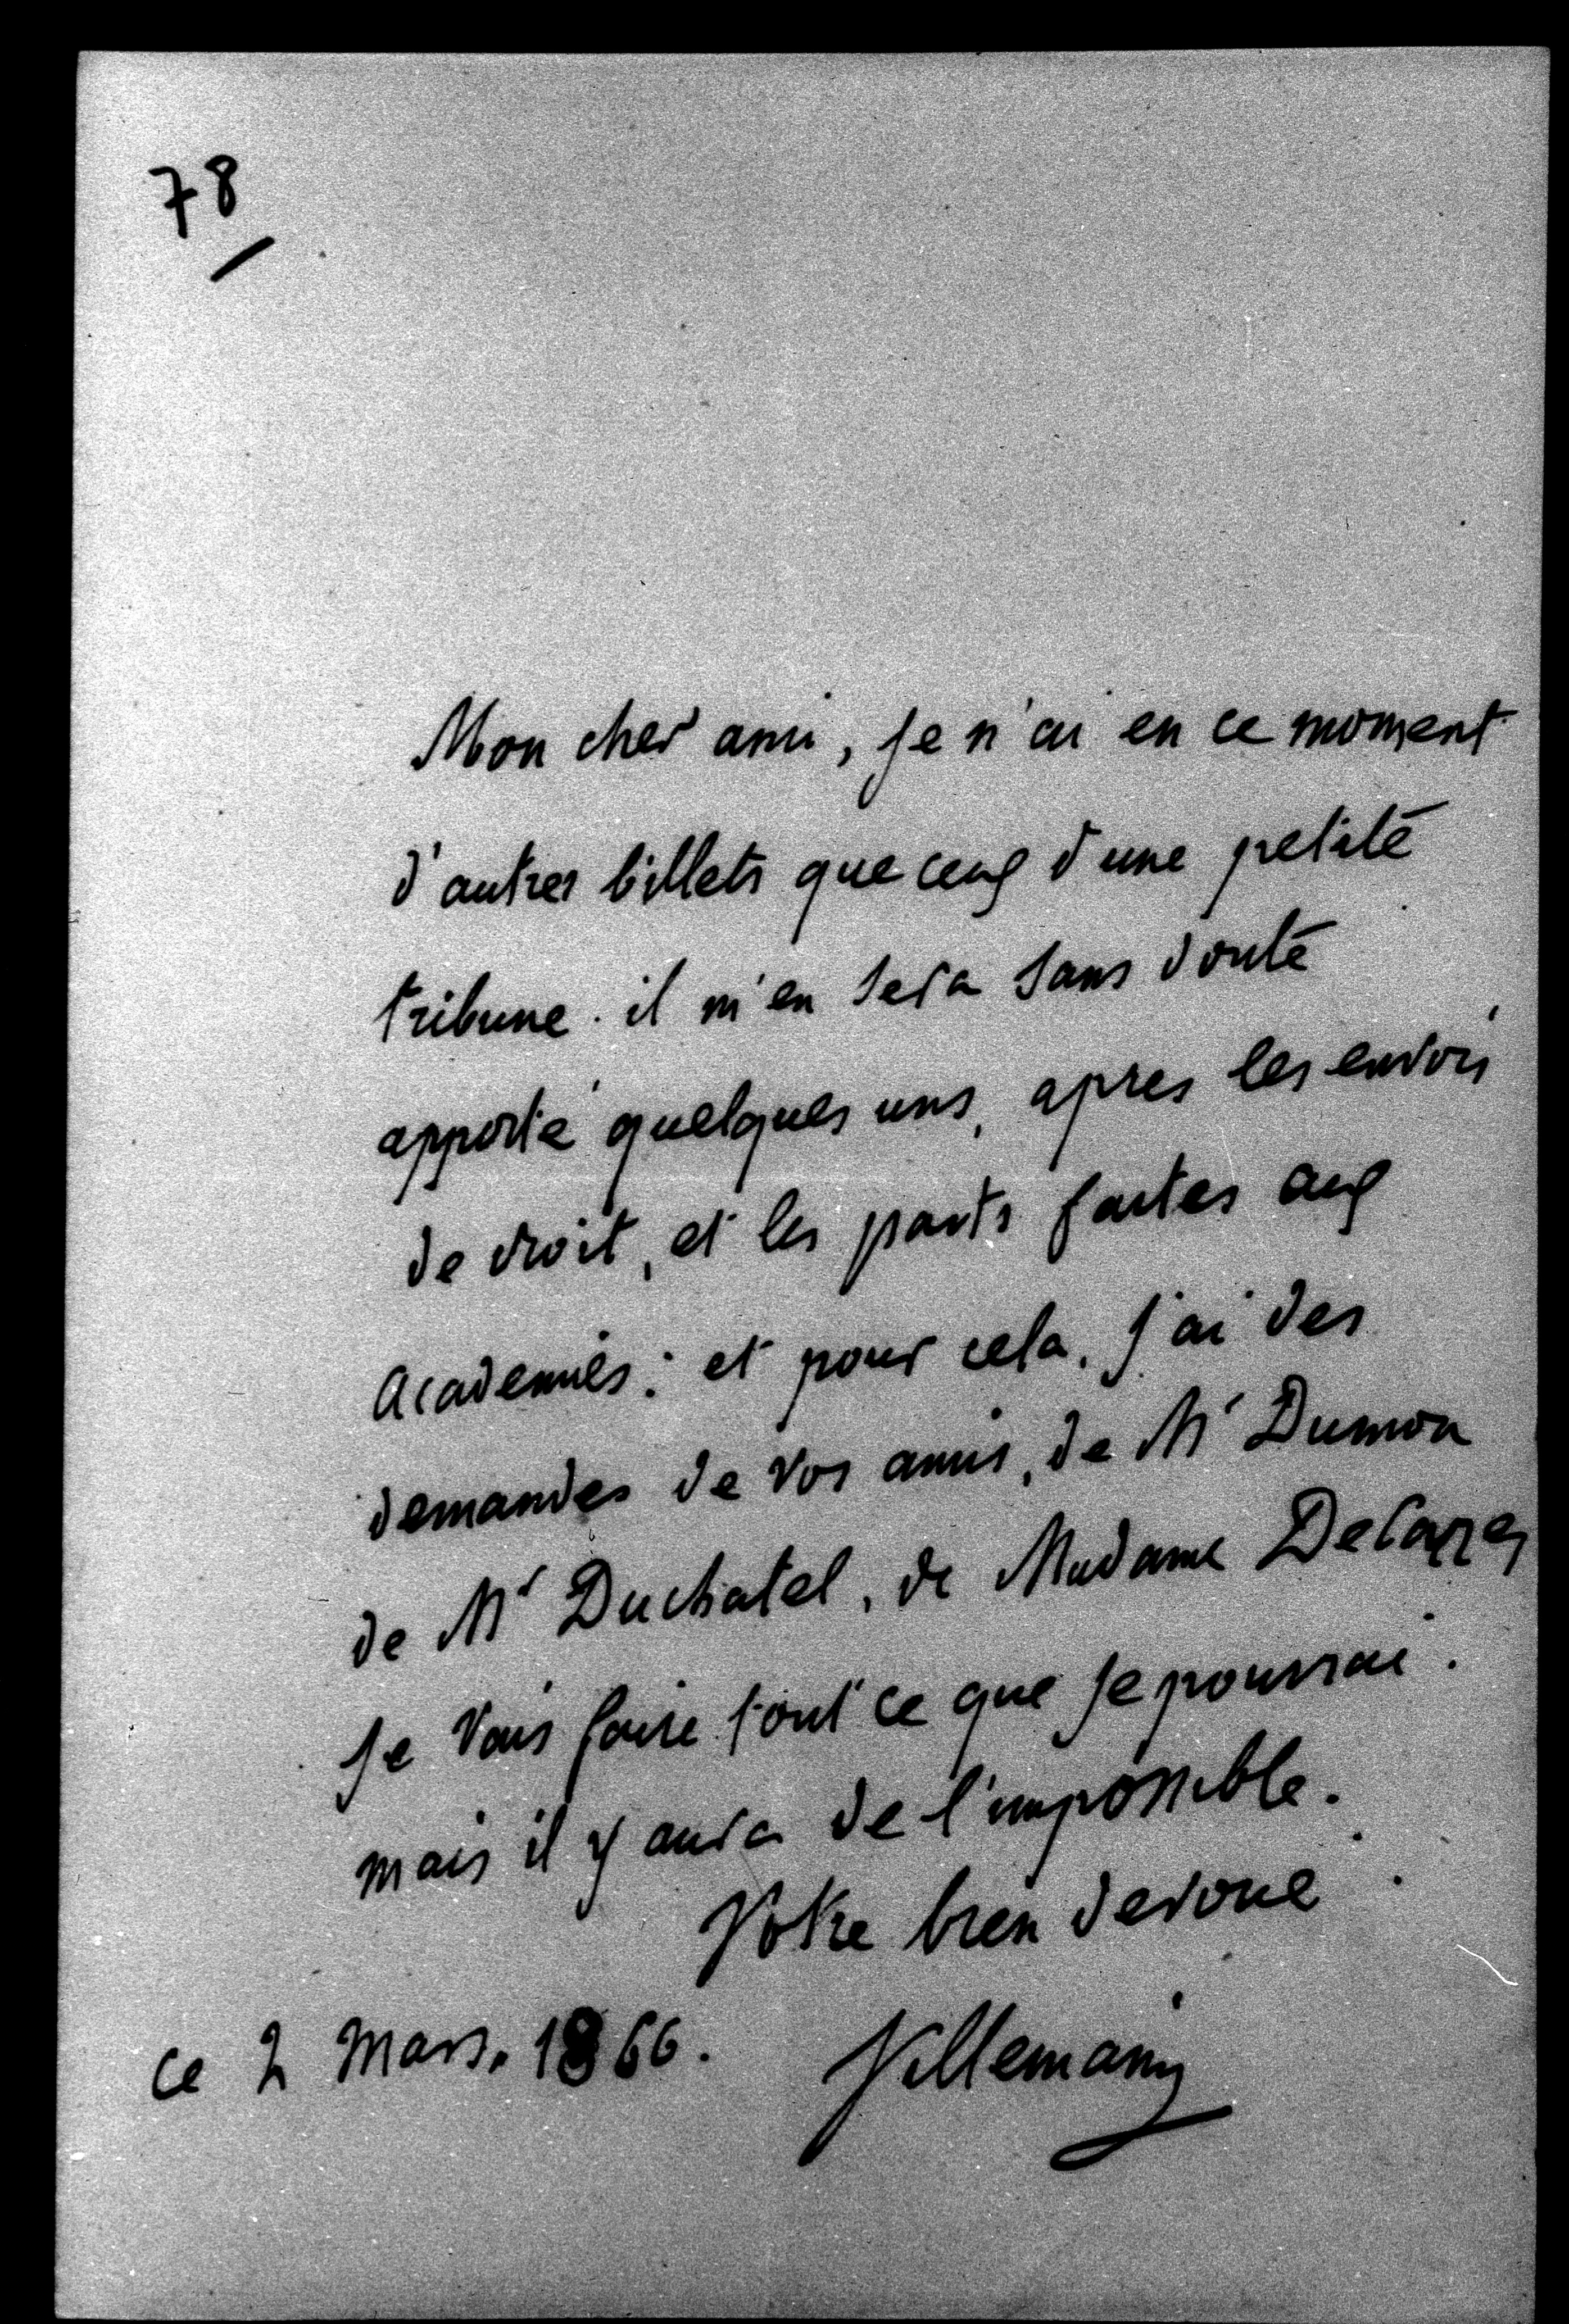 78
Mon cher ami, je n'ai en ce moment
d'autres billets que ceux d'une petite
tribune. il m'en sera sans doute
apporté quelques uns, apres les envois
de droit, et les parts faites aux
Academies: et pour cela, j'ai des
demandes de vos amis, de Mr Dumon
de Mr Duchatel, de Madame Decazes
je vais faire tout ce que je pourrai.
mais il y aura de l'impossible.
Votre bien devoué
ce 2 Mars. 1866. Villemain